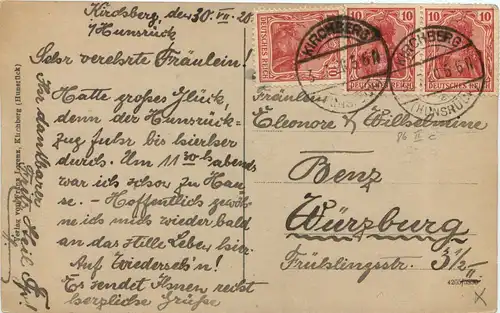 Kirchberg, den 30. VII. 20
Hunsrück
Sehr verehrte Fräulein!
Hatte großes Glück,
denn der Hunsrück-
zug fuhr bis hierher
durch. Um 11 abends
war ich schon zu Hau-
se. - Hoffentlich gewöh-
ne ich mich wieder bald
an das stille Leben hier.
Auf Wiederseh'n!
Es sendet Ihnen recht
herzliche Grüße
Ihr dankbarer
Kirchberg (Hunsrück)
DEUTSCHES REICH
10 10
10 10
DEUTSCHES REICH
KIRCHBERG
(HUNSRÜCK)
KIRCHBERG
(HUNSRÜCK)
Fräulein
Eleonore u. Wilhelmine
86 II c
Benz
Würzburg
Frühlingsstr. 3 1/2 II.